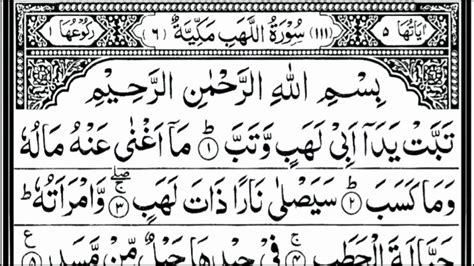 اٰیَاتُهَا ۵ (۱۱۱) سُوْرَةُ اللَّهَبِ مَكِّیَّةٌ (۶) رُكُوْعُهَا ۱
بِسْمِ اللّٰهِ الرَّحْمٰنِ الرَّحِیْمِ
تَبَّتْ یَدَاۤ اَبِیْ لَهَبٍ وَّتَبَّ ؕ﴿۱﴾ مَاۤ اَغْنٰی عَنْهُ مَالُهٗ
وَمَا كَسَبَ ؕ﴿۲﴾ سَیَصْلٰی نَارًا ذَاتَ لَهَبٍ ۚۖ﴿۳﴾ وَّامْرَاَتُهٗ ؕ
حَمَّالَةَ الْحَطَبِ ۚ﴿۴﴾ فِیْ جِیْدِهَا حَبْلٌ مِّنْ مَّسَدٍ ﴿۵﴾ ع